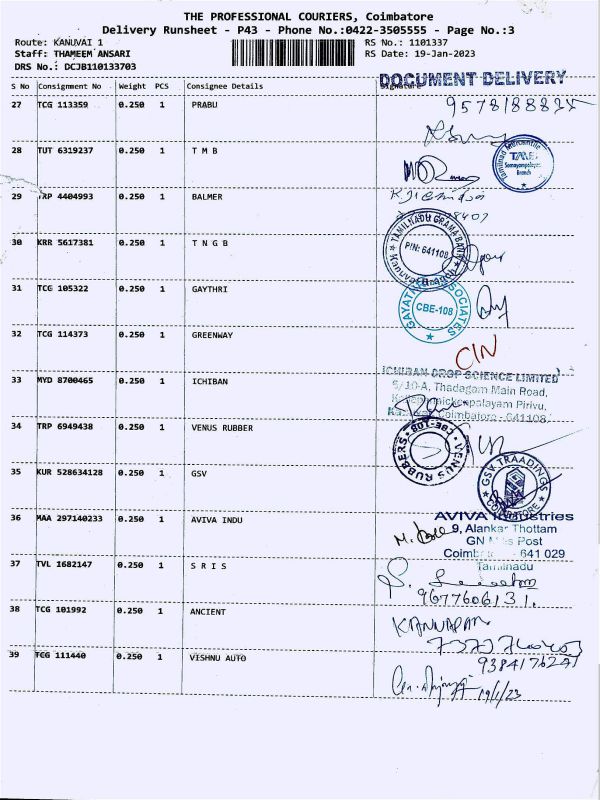 THE PROFESSIONAL COURIERS, Coimbatore
Delivery Runsheet - P43 - Phone No.:0422-3505555 - Page No.:3
Route: KANUVAI 1 RS No.: 1101337
Staff: THAMEEM ANSARI RS Date: 19-Jan-2023
DRS No.: DCJB110133703
DOCUMENT DELIVERY
S No Consignment No Weight PCS Consignee Details Signature
27 TCG 113359 0.250 1 PRABU
28 TUT 6319237 0.250 1 T M B
Tamilnad Mercantile
TMB
Somayampalayam
Branch
29 TRP 4404993 0.250 1 BALMER
30 KRR 5617381 0.250 1 T N G B
TAMILNADU GRAMA BANK
PIN: 641108
Kanuvai Branch
31 TCG 105322 0.250 1 GAYTHRI
GAYATHRI ASSOCIATES
CBE-108
32 TCG 114373 0.250 1 GREENWAY
CIN
33 MYD 8700465 0.250 1 ICHIBAN
ICHIBAN CROP SCIENCE LIMITED
5/10-A, Thadagam Main Road,
Pirivu,
Coimbatore - 641108
34 TRP 6949438 0.250 1 VENUS RUBBER
VENUS RUBBERS CBE-108
35 KUR 528634128 0.250 1 GSV
GSV TRAADINGS
COIMBATORE
36 MAA 297140233 0.250 1 AVIVA INDU
AVIVA Industries
9, Alankar Thottam
GN Post
641 029
Tamilnadu
37 TVL 1682147 0.250 1 S R I S
9677606131.
38 TCG 101992 0.250 1 ANCIENT
KANNAPAN
39 TCG 111440 0.250 1 VISHNU AUTO
9384176241
19/1/23